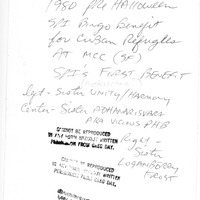 1980 pre Halloween
SPI Bingo Benefit
for Cuban Refugees
AT MCC (SF)
SPI's FIRST BENEFIT
Left - Sister UNITY/Harmony
Center - Sister ADHANARISVARA
AKA VICIOUS PHB
Right -
Sister
LOGANBERRY
FROST
CANNOT BE REPRODUCED
IN ANY FORM WITHOUT WRITTEN
PERMISSION FROM GREG DAY.
CANNOT BE REPRODUCED
IN ANY FORM WITHOUT WRITTEN
PERMISSION FROM GREG DAY.